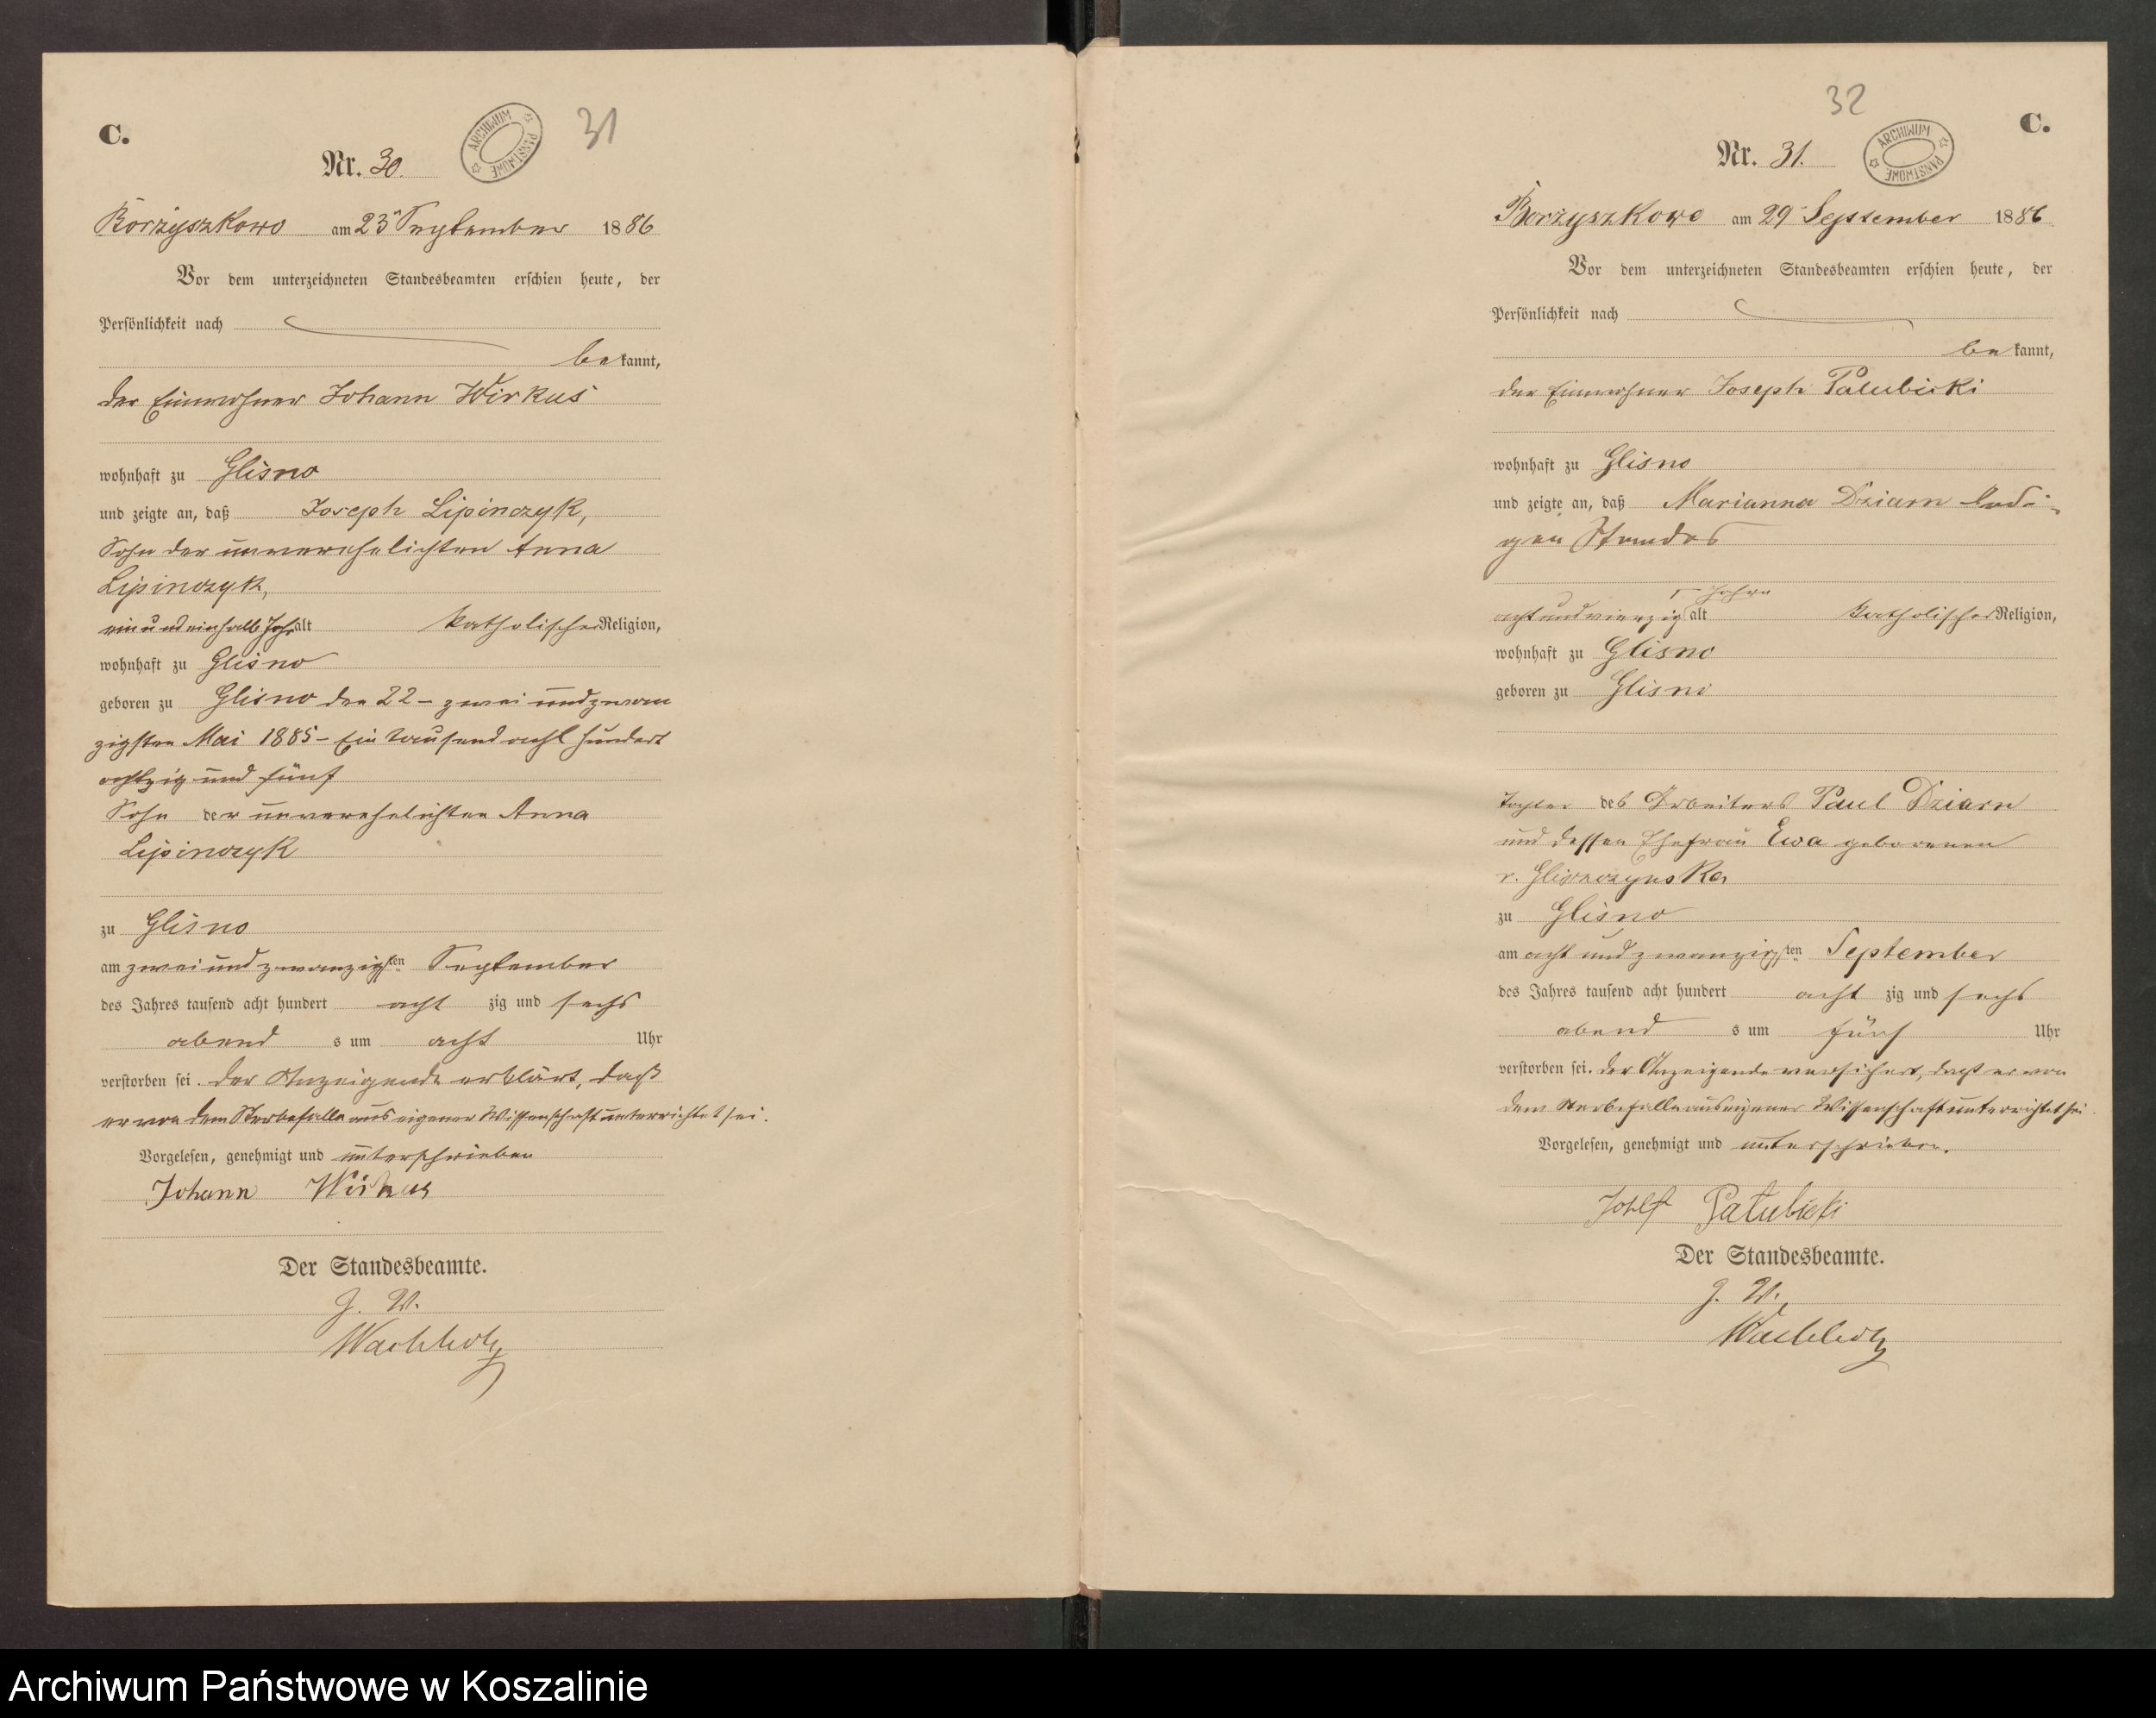 C.
ARCHIWUM PAŃSTWOWE
31
Nr. 30.
Borzyszkowo am 23 September 1886
Vor dem unterzeichneten Standesbeamten erschien heute, der
Persönlichkeit nach
bekannt,
der Einwohner Johann Wirkus
wohnhaft zu Glisno
und zeigte an, daß Joseph Lipinczyk,
Sohn der unverehelichten Anna
Lipinczyk,
ein und einhalb Jahr alt katholischer Religion,
wohnhaft zu Glisno
geboren zu Glisno den 22 – zwei und zwan
zigsten Mai 1885 – Ein tausend acht hundert
achtzig und fünf
Sohn der unverehelichten Anna
Lipinczyk
zu Glisno
am zwei und zwanzigsten September
des Jahres tausend acht hundert acht zig und sechs
abends um acht Uhr
verstorben sei. Der Anzeigende erklärt, daß
er von dem Sterbefalle aus eigener Wissenschaft unterrichtet sei.
Vorgelesen, genehmigt und unterschrieben
Johann Wirkus
Der Standesbeamte.
J. V.
Wachholz
32
C.
Nr. 31.
ARCHIWUM PAŃSTWOWE
Borzyszkowo am 29 September 1886
Vor dem unterzeichneten Standesbeamten erschien heute, der
Persönlichkeit nach
bekannt,
der Einwohner Joseph Palubicki
wohnhaft zu Glisno
und zeigte an, daß Marianna Dziarn ledi-
gen Standes
Jahre
acht und vierzig alt katholischer Religion,
wohnhaft zu Glisno
geboren zu Glisno
Tochter des Arbeiters Paul Dziarn
und dessen Ehefrau Ewa geborenen
v. Gliszczynska
zu Glisno
am acht und zwanzigsten September
des Jahres tausend acht hundert acht zig und sechs
abends um fünf Uhr
verstorben sei. Der Anzeigende versichert, daß er von
dem Sterbefalle aus eigener Wissenschaft unterrichtet sei.
Vorgelesen, genehmigt und unterschrieben.
Palubicki
Der Standesbeamte.
J. V.
Wachholz
Archiwum Państwowe w Koszalinie